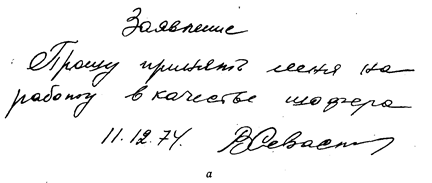 Заявление
Прошу принять меня на
работу в качестве шофера
11.12.74. ВСеваст
а